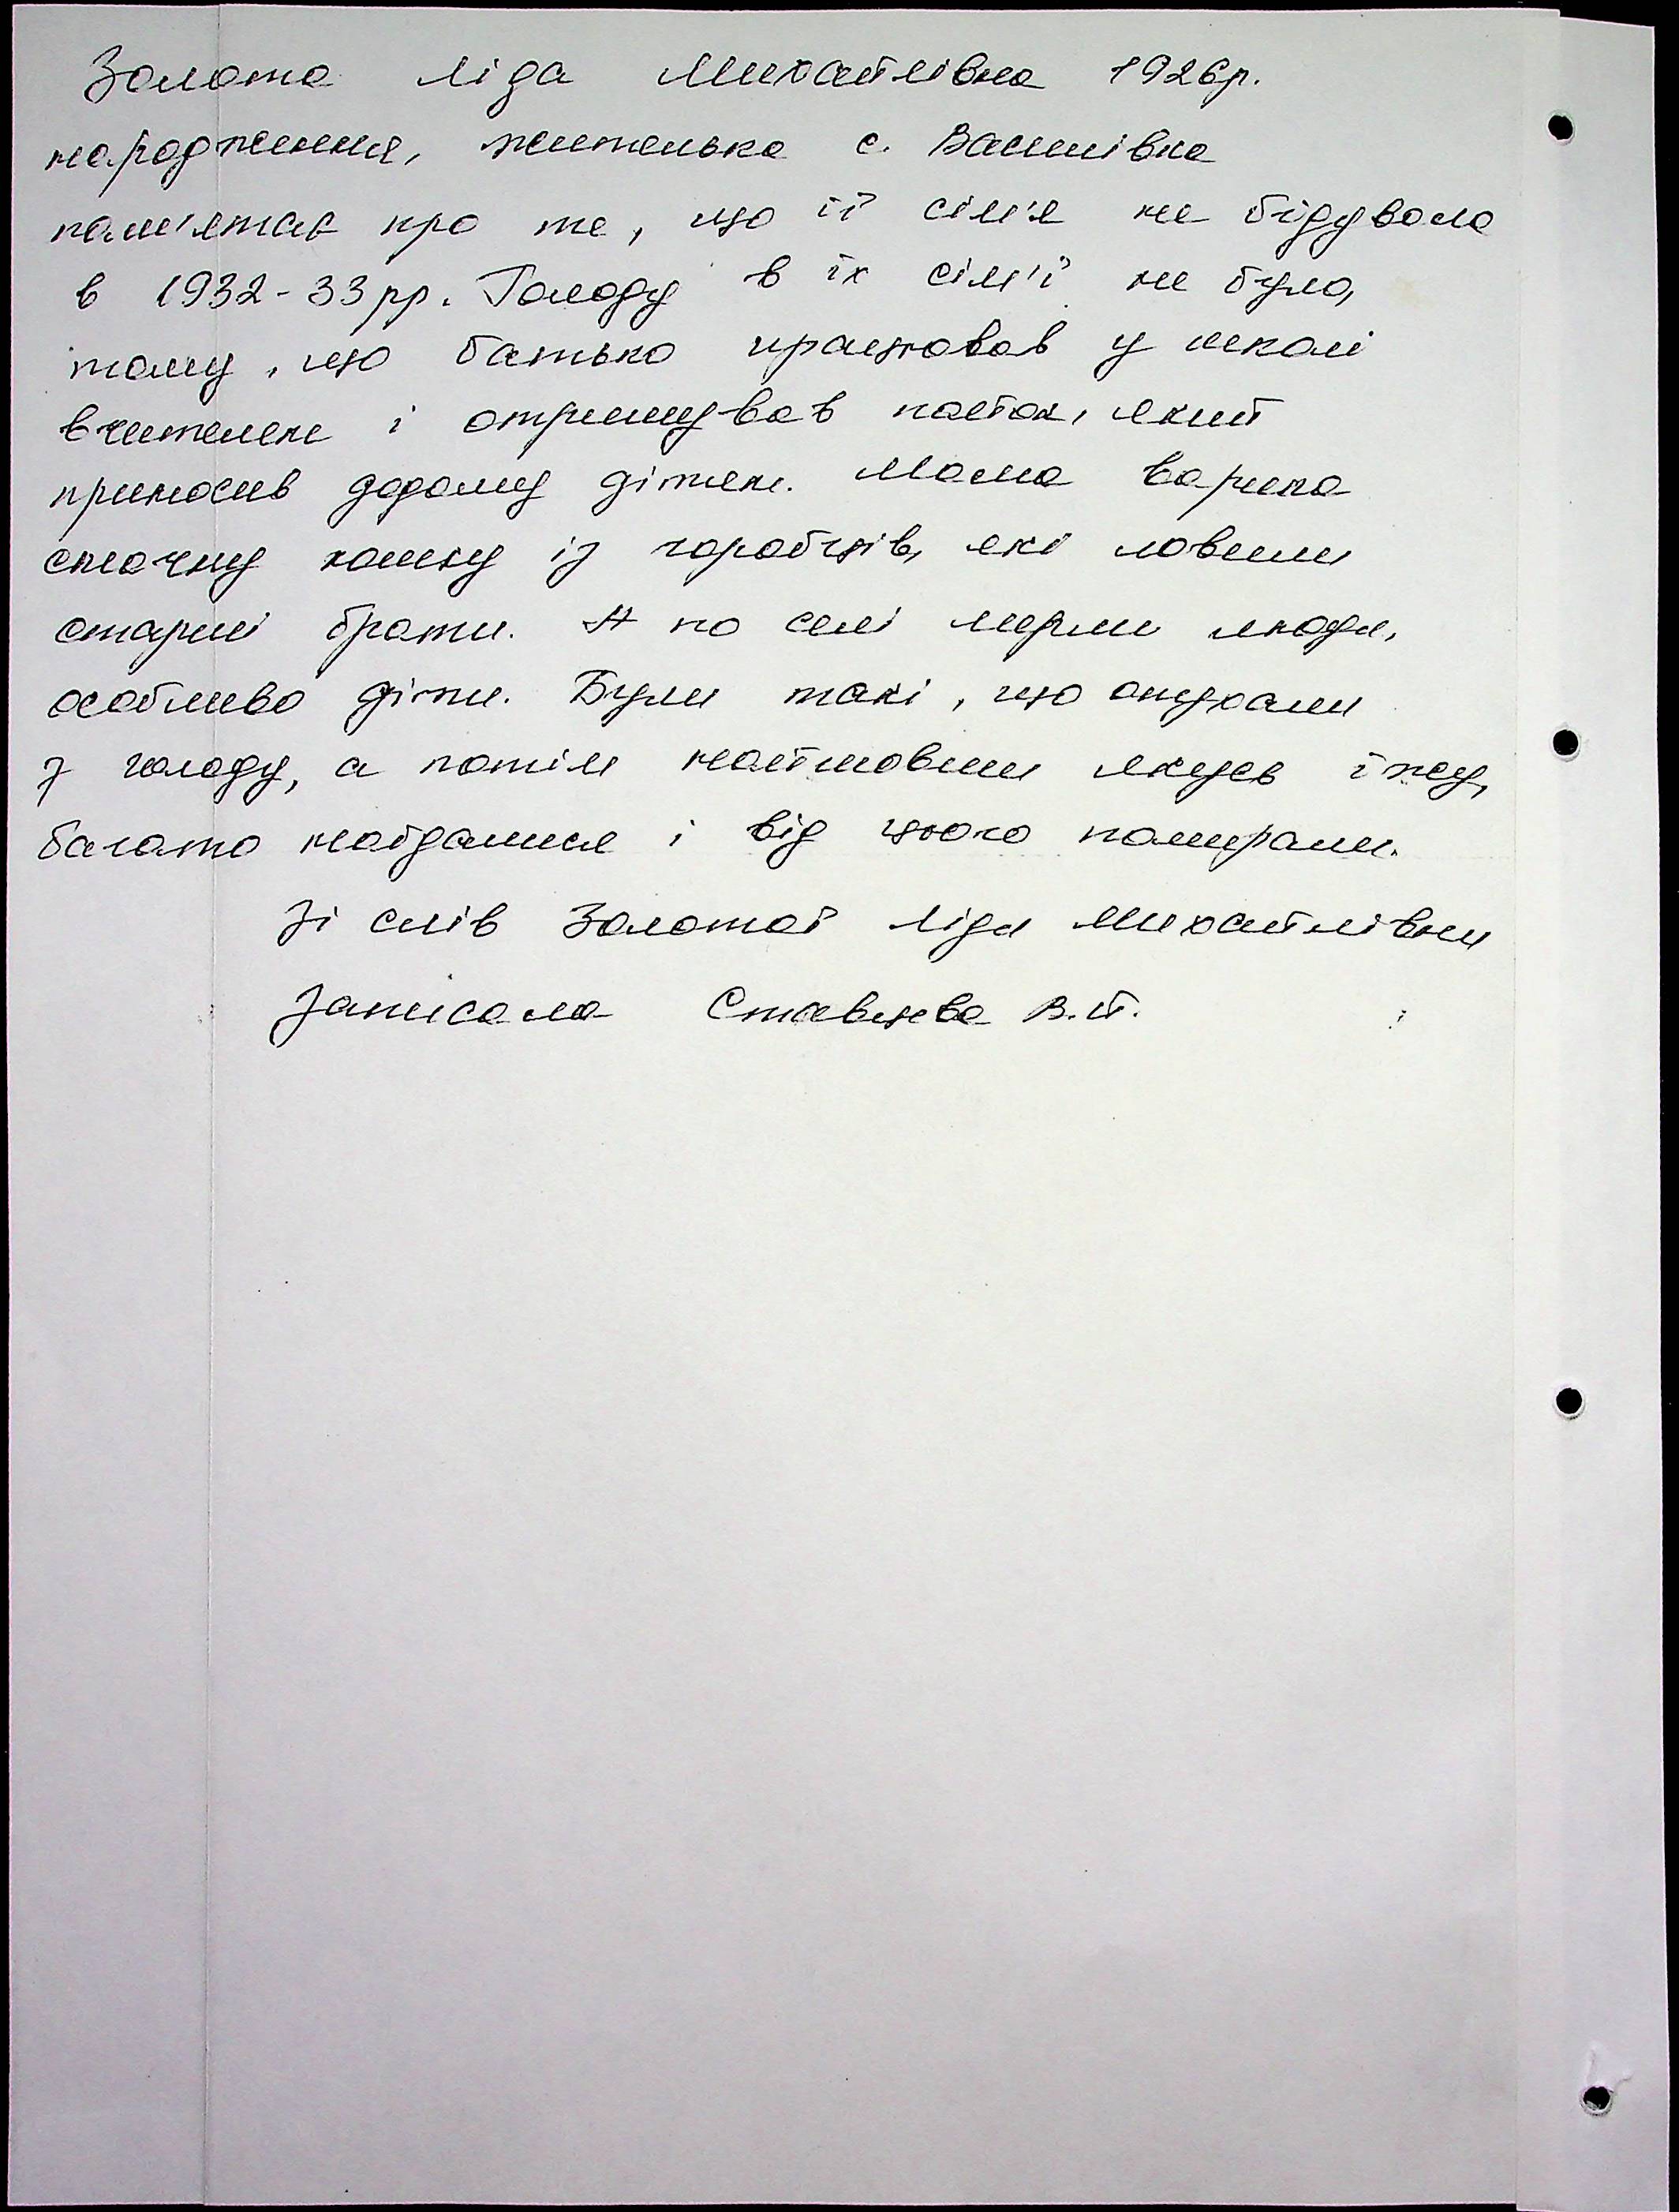 Золота Ліда Михайлівна 1926р.
народження, жителька с. Василівка
пам'ятає про те, що її сім'я не бідувала
в 1932-33рр. Голоду в їх сім'ї не було,
тому, що батько працював у школі
вчителем і отримував пайок, який
приносив додому дітям. Мама варила
смачну юшку із горобців, які ловили
старші брати. А по селі мерли люди,
особливо діти. Були такі, що опухали
з голоду, а потім найшовши якусь їжу,
багато наїдалися і від цього помирали.
Зі слів Золотої Ліди Михайлівни
Записала Ставцева В.Й.